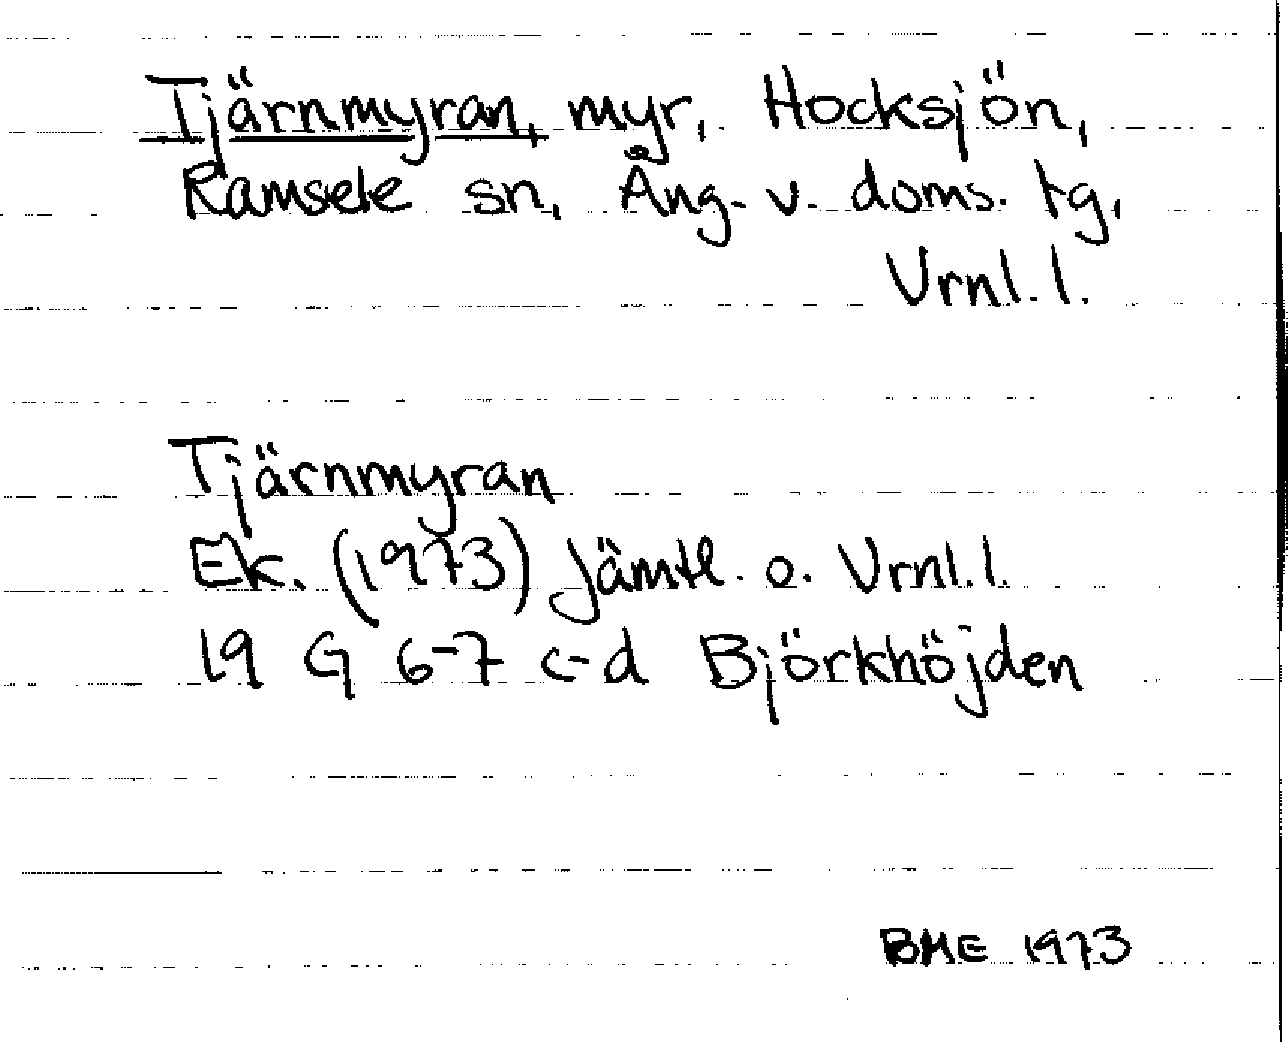 Tjärnmyran, myr, Hocksjön,
Ramsele sn, Ång. v. doms. tg.
Vrnl. l.
Tjärnmyran
Ek. (1973) Jämtl. o. Vrnl. l.
19 G 6-7 c-d Björkhöjden
BME 1973